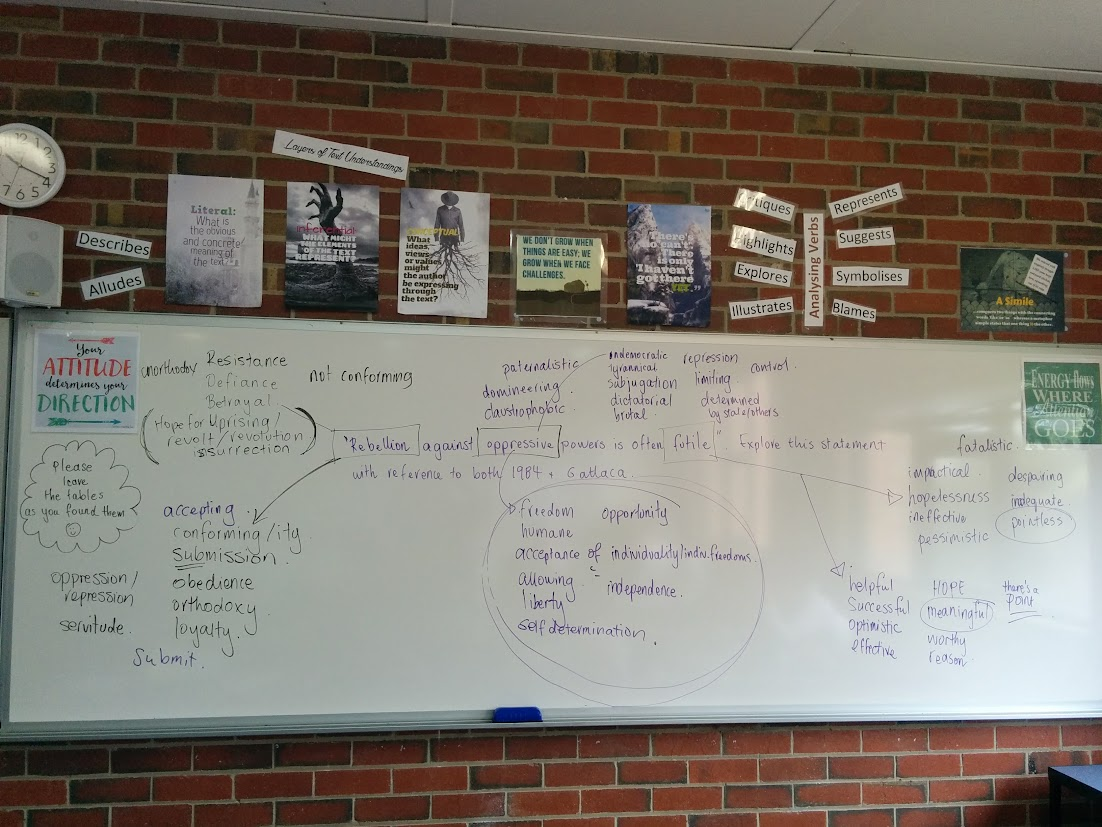 12
1
2
3
4
5
6
7
Layers of Text Understandings
Describes
Alludes
Literal:
What is
the obvious
and concrete
meaning of
the text?
inferential
WHAT MIGHT
THE ELEMENTS
OF THE TEXT
REPRESENT?
CONCEPTUAL
What
ideas,
views
or values
might
the author
be expressing
through
the text?
WE DON'T GROW WHEN
THINGS ARE EASY; WE
GROW WHEN WE FACE
CHALLENGES.
There's
no can't.
There
is only
I haven't
got there
Highlights
Explores
Illustrates
Analysing Verbs
Represents
Suggests
Symbolises
Blames
A Simile
Your
ATTITUDE
determines your
DIRECTION
ENERGY flows
WHERE
Attention
GOES
Please
leave
the tables
as you found them
unorthodox
Resistance
Defiance
Betrayal
not conforming
(Hope for Uprising/
revolt/revolution
insurrection)
paternalistic
domineering
claustrophobic.
undemocratic
tyrannical
subjugation
dictatorial
brutal.
repression
limiting.
determined
by state/others
control.
"Rebellion against oppressive powers is often futile" Explore this statement
with reference to both 1984 + Gattaca.
accepting
conforming/ity
submission.
obedience
orthodoxy
loyalty.
oppression/
repression
servitude.
submit.
freedom opportunity
humane
acceptance of individuality/indiv.freedoms.
allowing. independence.
liberty
self determination.
fatalistic.
impractical.
hopelessness
ineffective
pessimistic
despairing
inadequate.
pointless
helpful
successful
optimistic
effective
HOPE
meaningful
worthy
reason
there's a
POINT